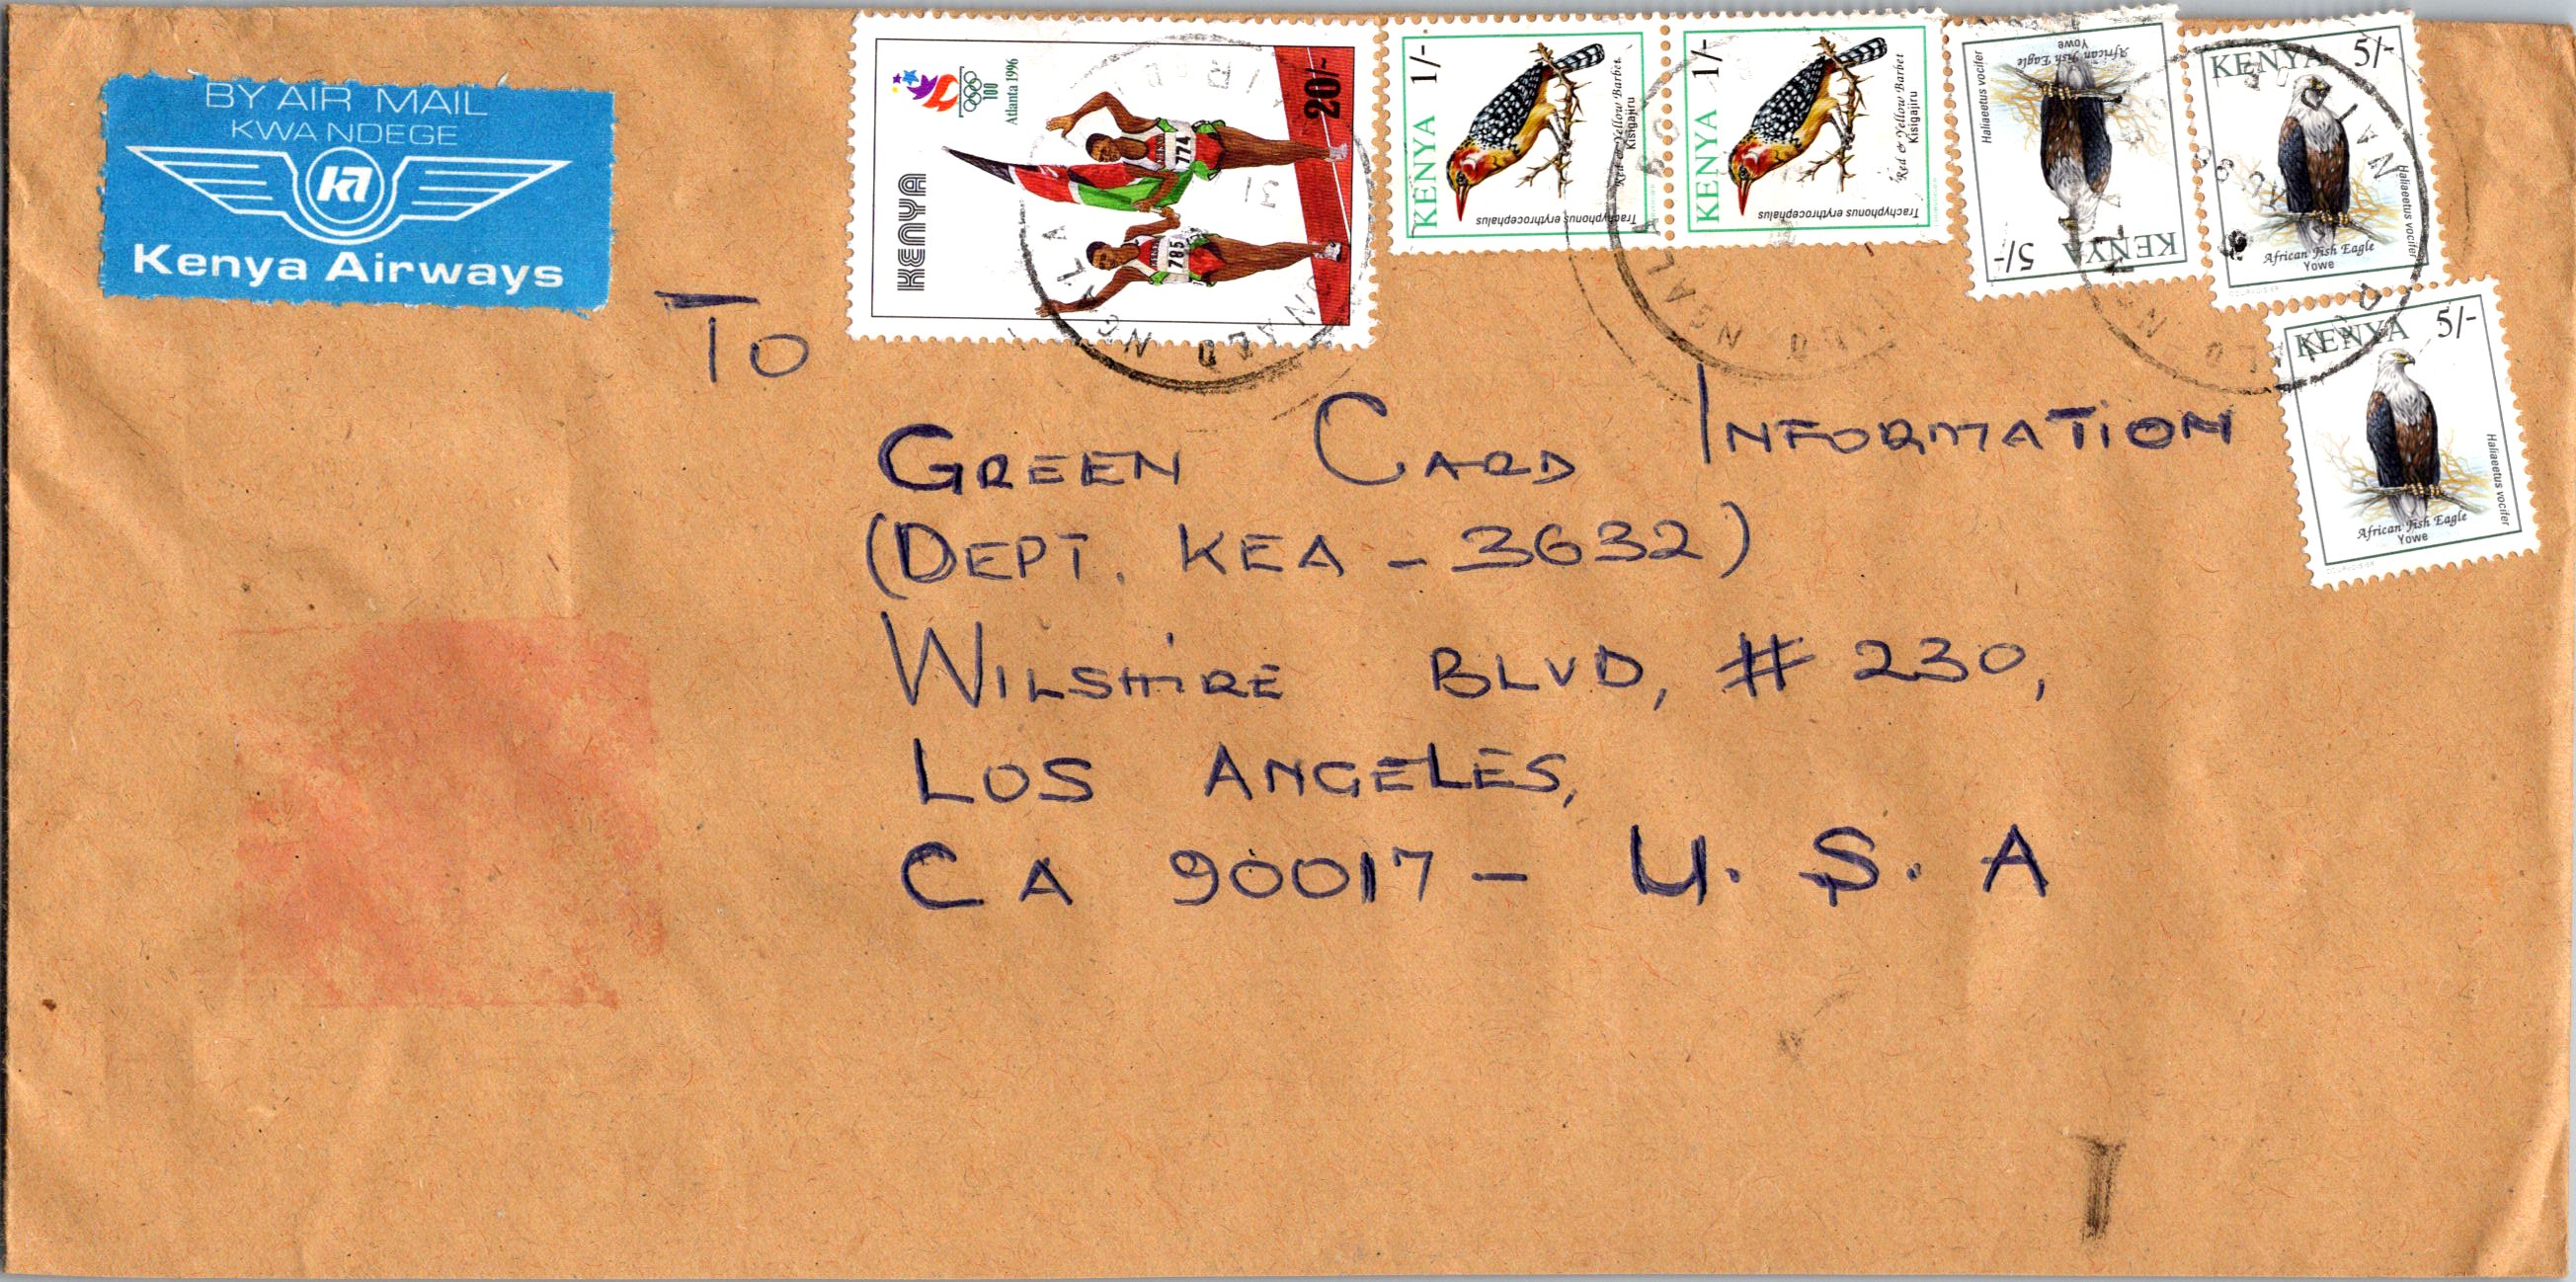 BY AIR MAIL
KWA NDEGE
KA
Kenya Airways
KENYA
100
Atlanta 1996
20/-
774
785
KENYA 1/-
Red & Yellow Barbet
Kisigajiru
Trachyphonus erythrocephalus
KENYA 1/-
Red & Yellow Barbet
Kisigajiru
Trachyphonus erythrocephalus
KENYA 5/-
Haliaeetus vocifer
African Fish Eagle
Yowe
KENYA 5/-
Haliaeetus vocifer
African Fish Eagle
Yowe
KENYA 5/-
Haliaeetus vocifer
African Fish Eagle
Yowe
RONALD NGALA
31
TO
GREEN CARD INFORMATION
(DEPT. KEA - 3632)
WILSHIRE BLVD, # 230,
LOS ANGELES,
CA 90017 - U. S. A